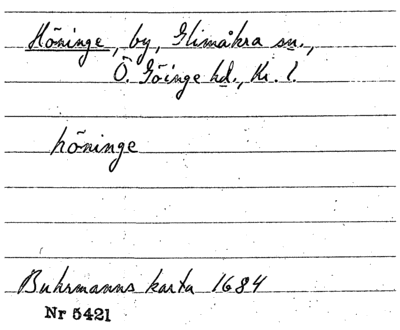 Höninge, by, Glimåkra sn.,
Ö. Göinge hd., Kr. l.
höninge
Buhrmanns karta 1684
Nr 5421